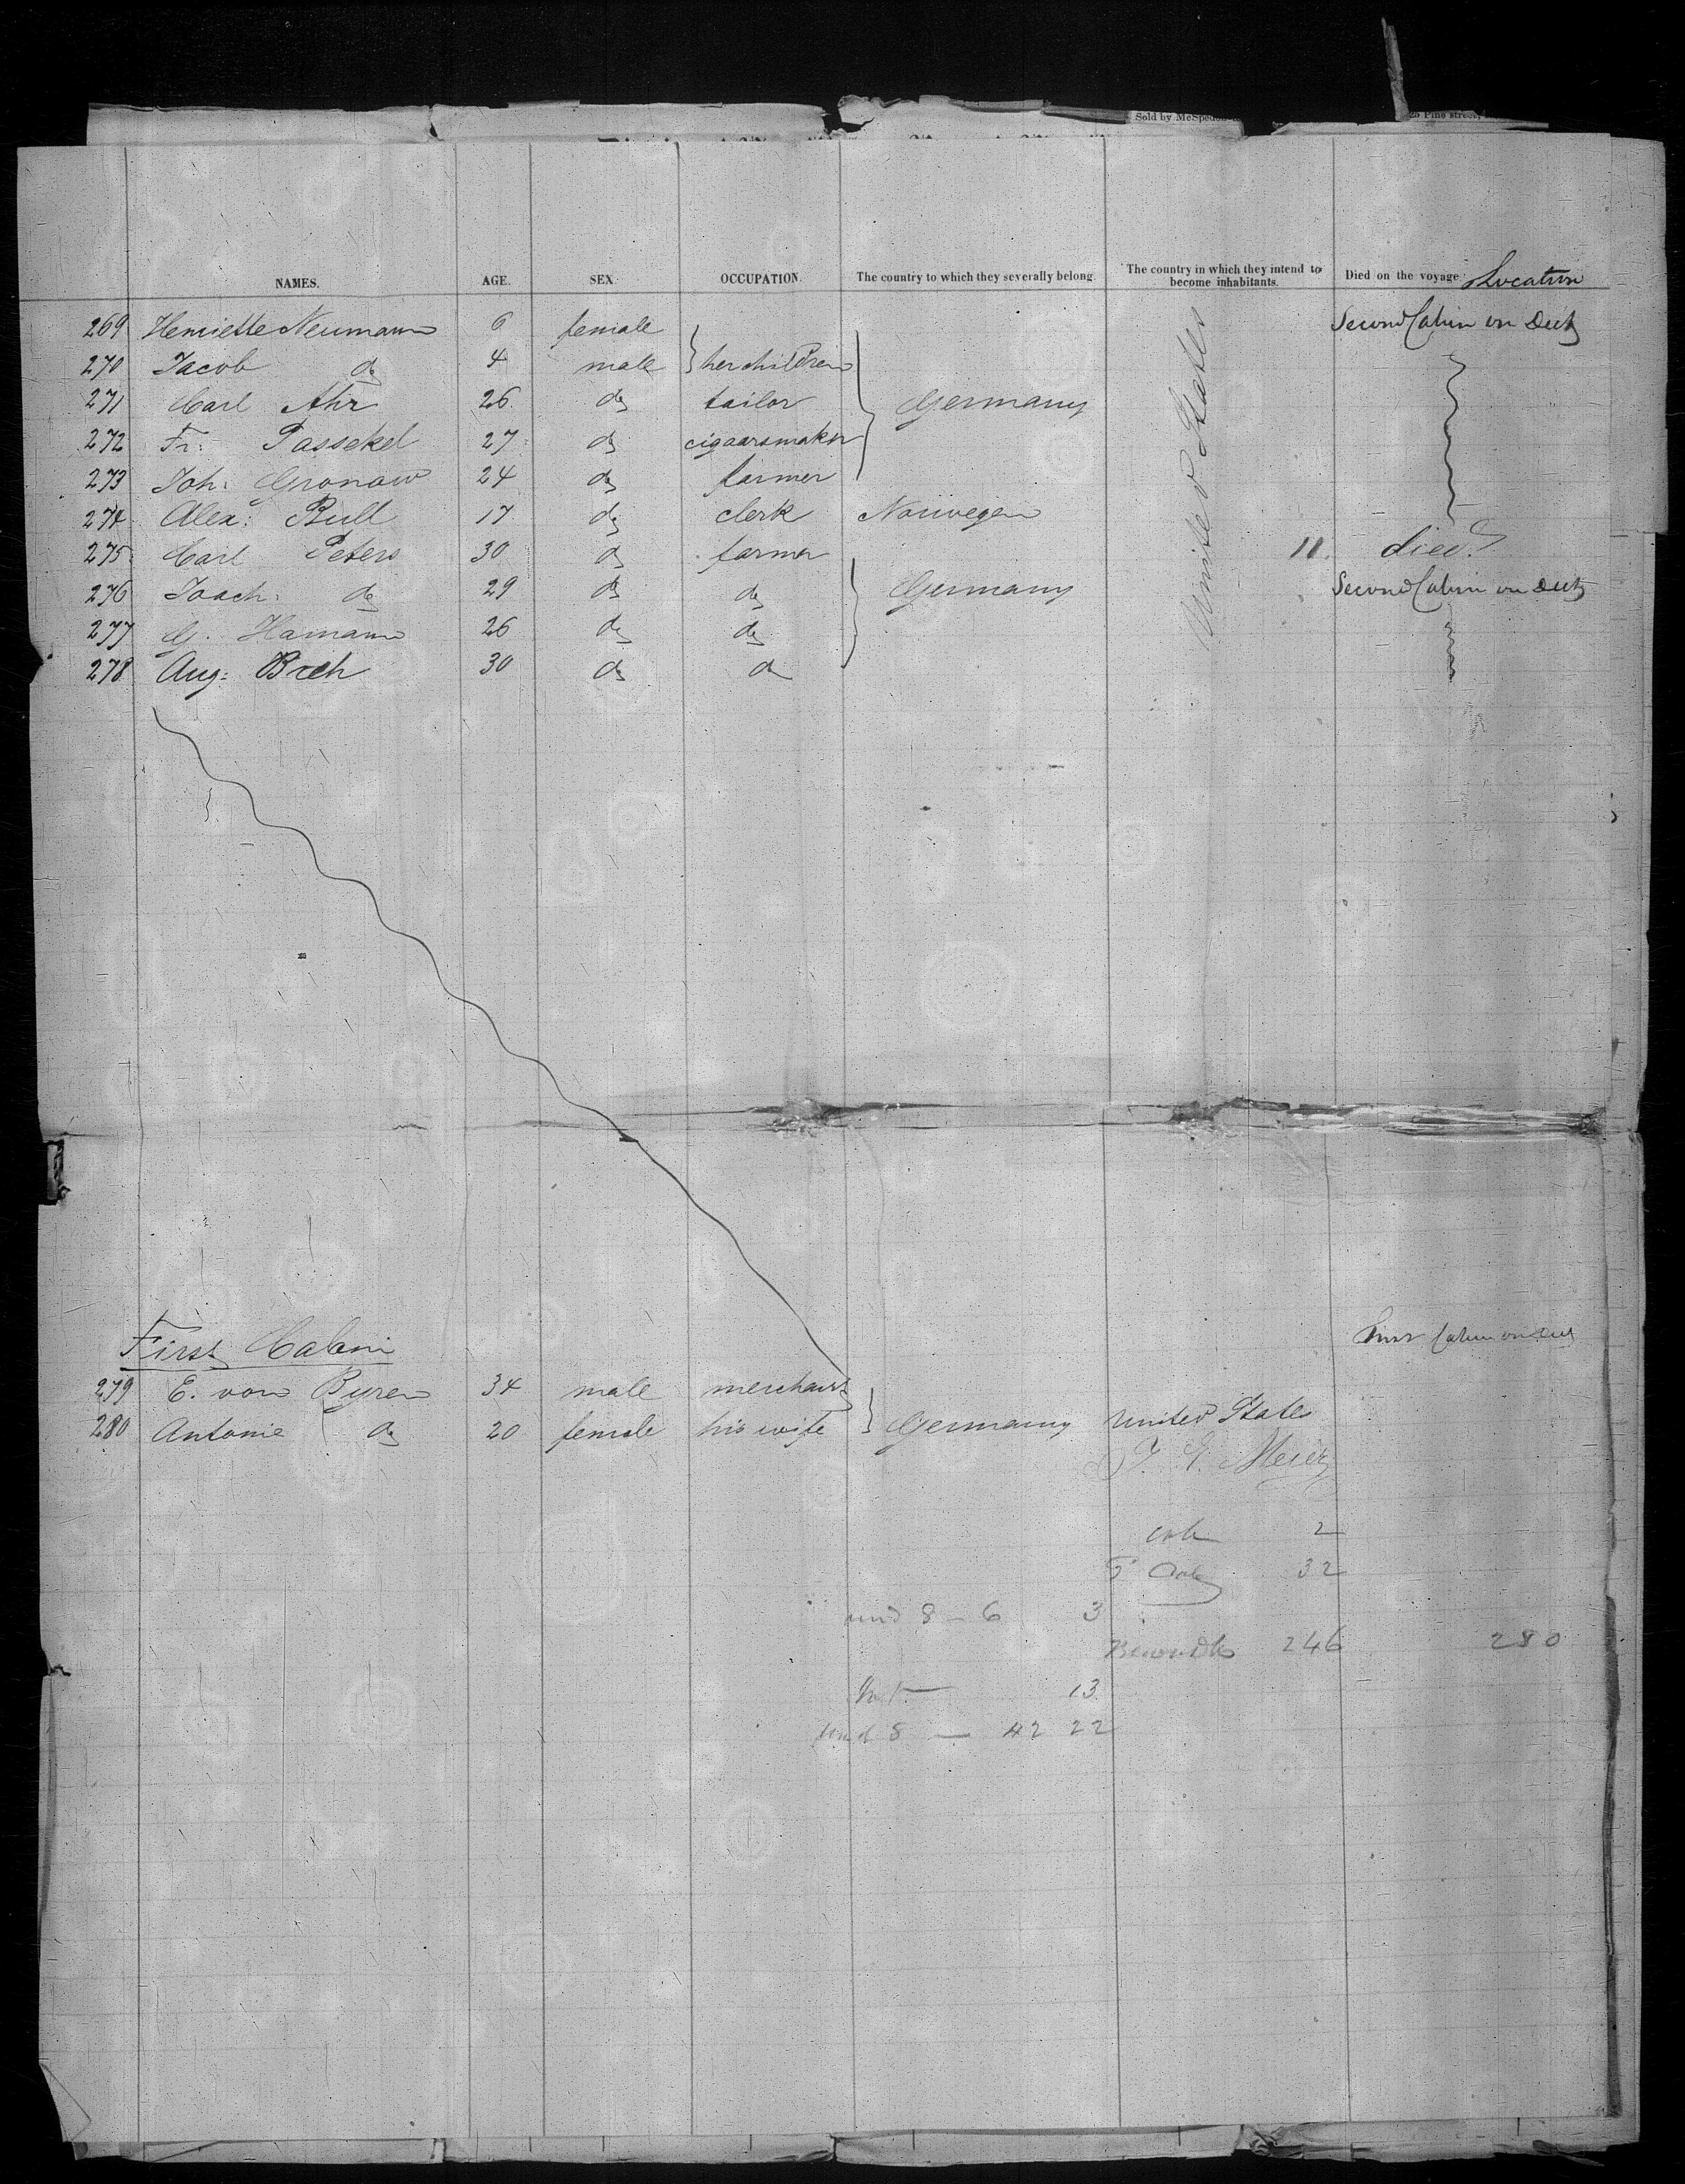 Sold by McSpedon
25 Pine street,
NAMES. AGE. SEX. OCCUPATION. The country to which they severally belong. The country in which they intend to become inhabitants. Died on the voyage. Location
269 Henriette Neumann 6 female Second Cabin on Deck
270 Jacob do 4 male } her children
271 Carl Ahr 26 do tailor Germany
272 Fr: Passekel 27 do cigaarsmaker
273 Joh: Gronow 24 do farmer
274 Alex: Bull 17 do clerk Norwegen
United States
275 Carl Peters 30 do farmer 11. died
276 Joach: do 29 do do Germany Second Cabin on Deck
277 G. Hamann 26 do do
278 Aug: 30 do do
First Cabin on Deck
First Cabin
279 E. von Byren 34 male merchant
280 Antonie do 20 female his wife } Germany United States
Meier
2
32
und 8 - 6 3
246 280
13
und 8 — 42 22